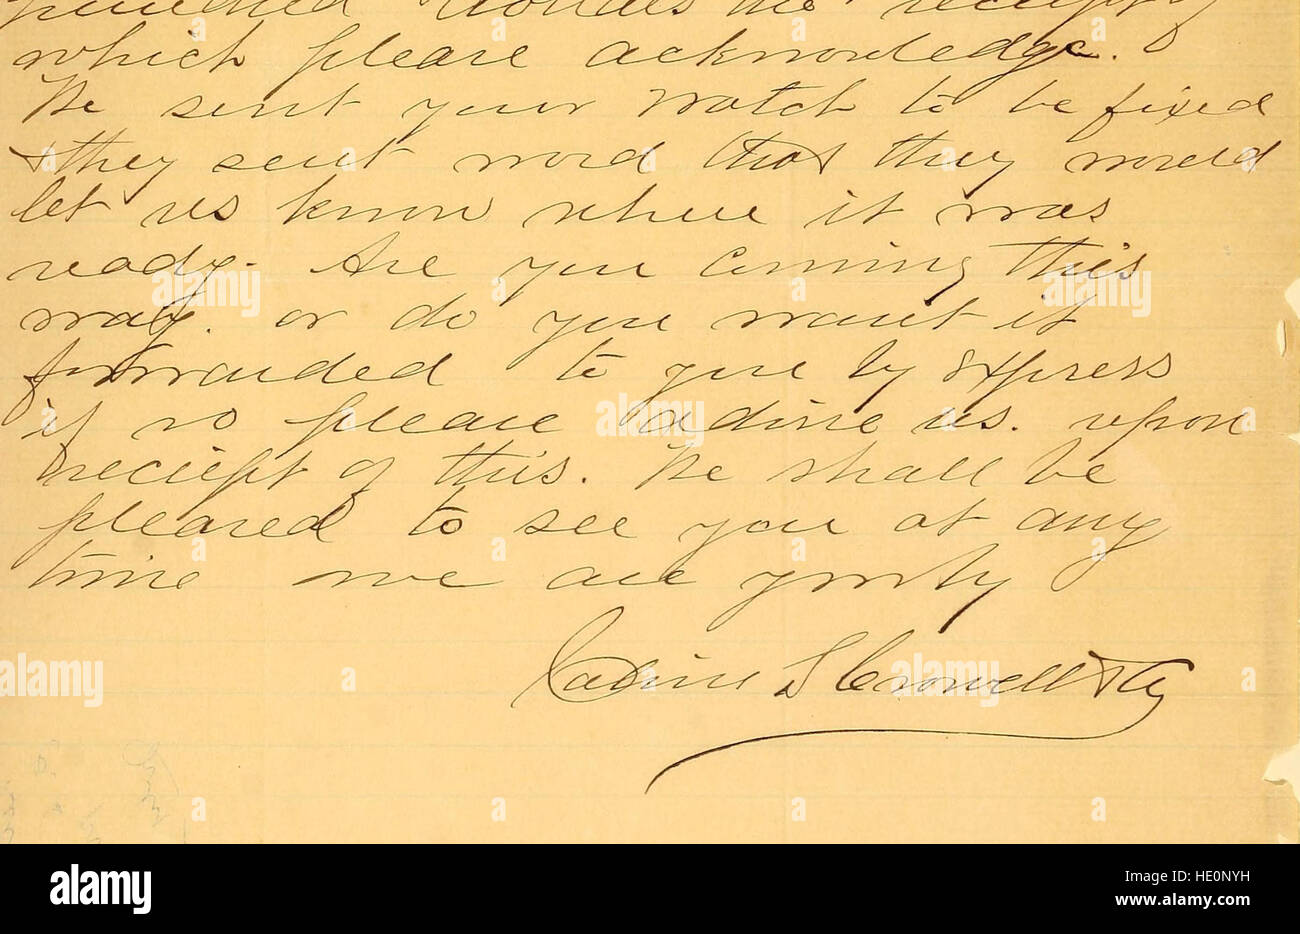 hundred dollars the receipt of
which please acknowledge.
We sent your watch to be fixed
& they sent word that they would
let us know when it was
ready. Are you coming this
way. or do you want it
forwarded to you by Express
if so please advise us. upon
reciept of this. We shall be
pleased to see you at any
time we are yours truly
S Crowell & Co
alamy
Image ID: HE0NYH
www.alamy.com